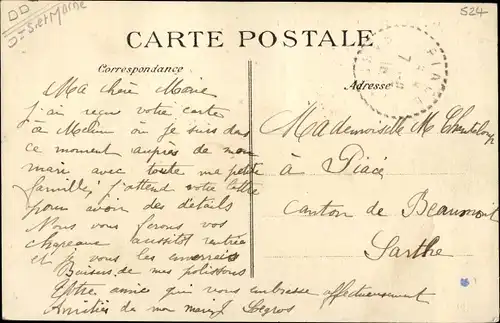 Dt S. et Marne
524
CARTE POSTALE
Correspondance
Adresse
PIACÉ
Ma chère Marie
j'ai reçu votre carte
à Melun où je suis dans
ce moment auprès de mon
mari avec toute ma petite
famille, j'attend votre lettre
pour avoir des détails
Nous vous ferons vos
chapeaux aussitôt rentrée
et je vous les
Baisers de mes polissons
Votre amie qui vous embrasse affectueusement
Amitiés de mon mari J Legros
Mademoiselle M
à Piacé
canton de Beaumont
Sarthe